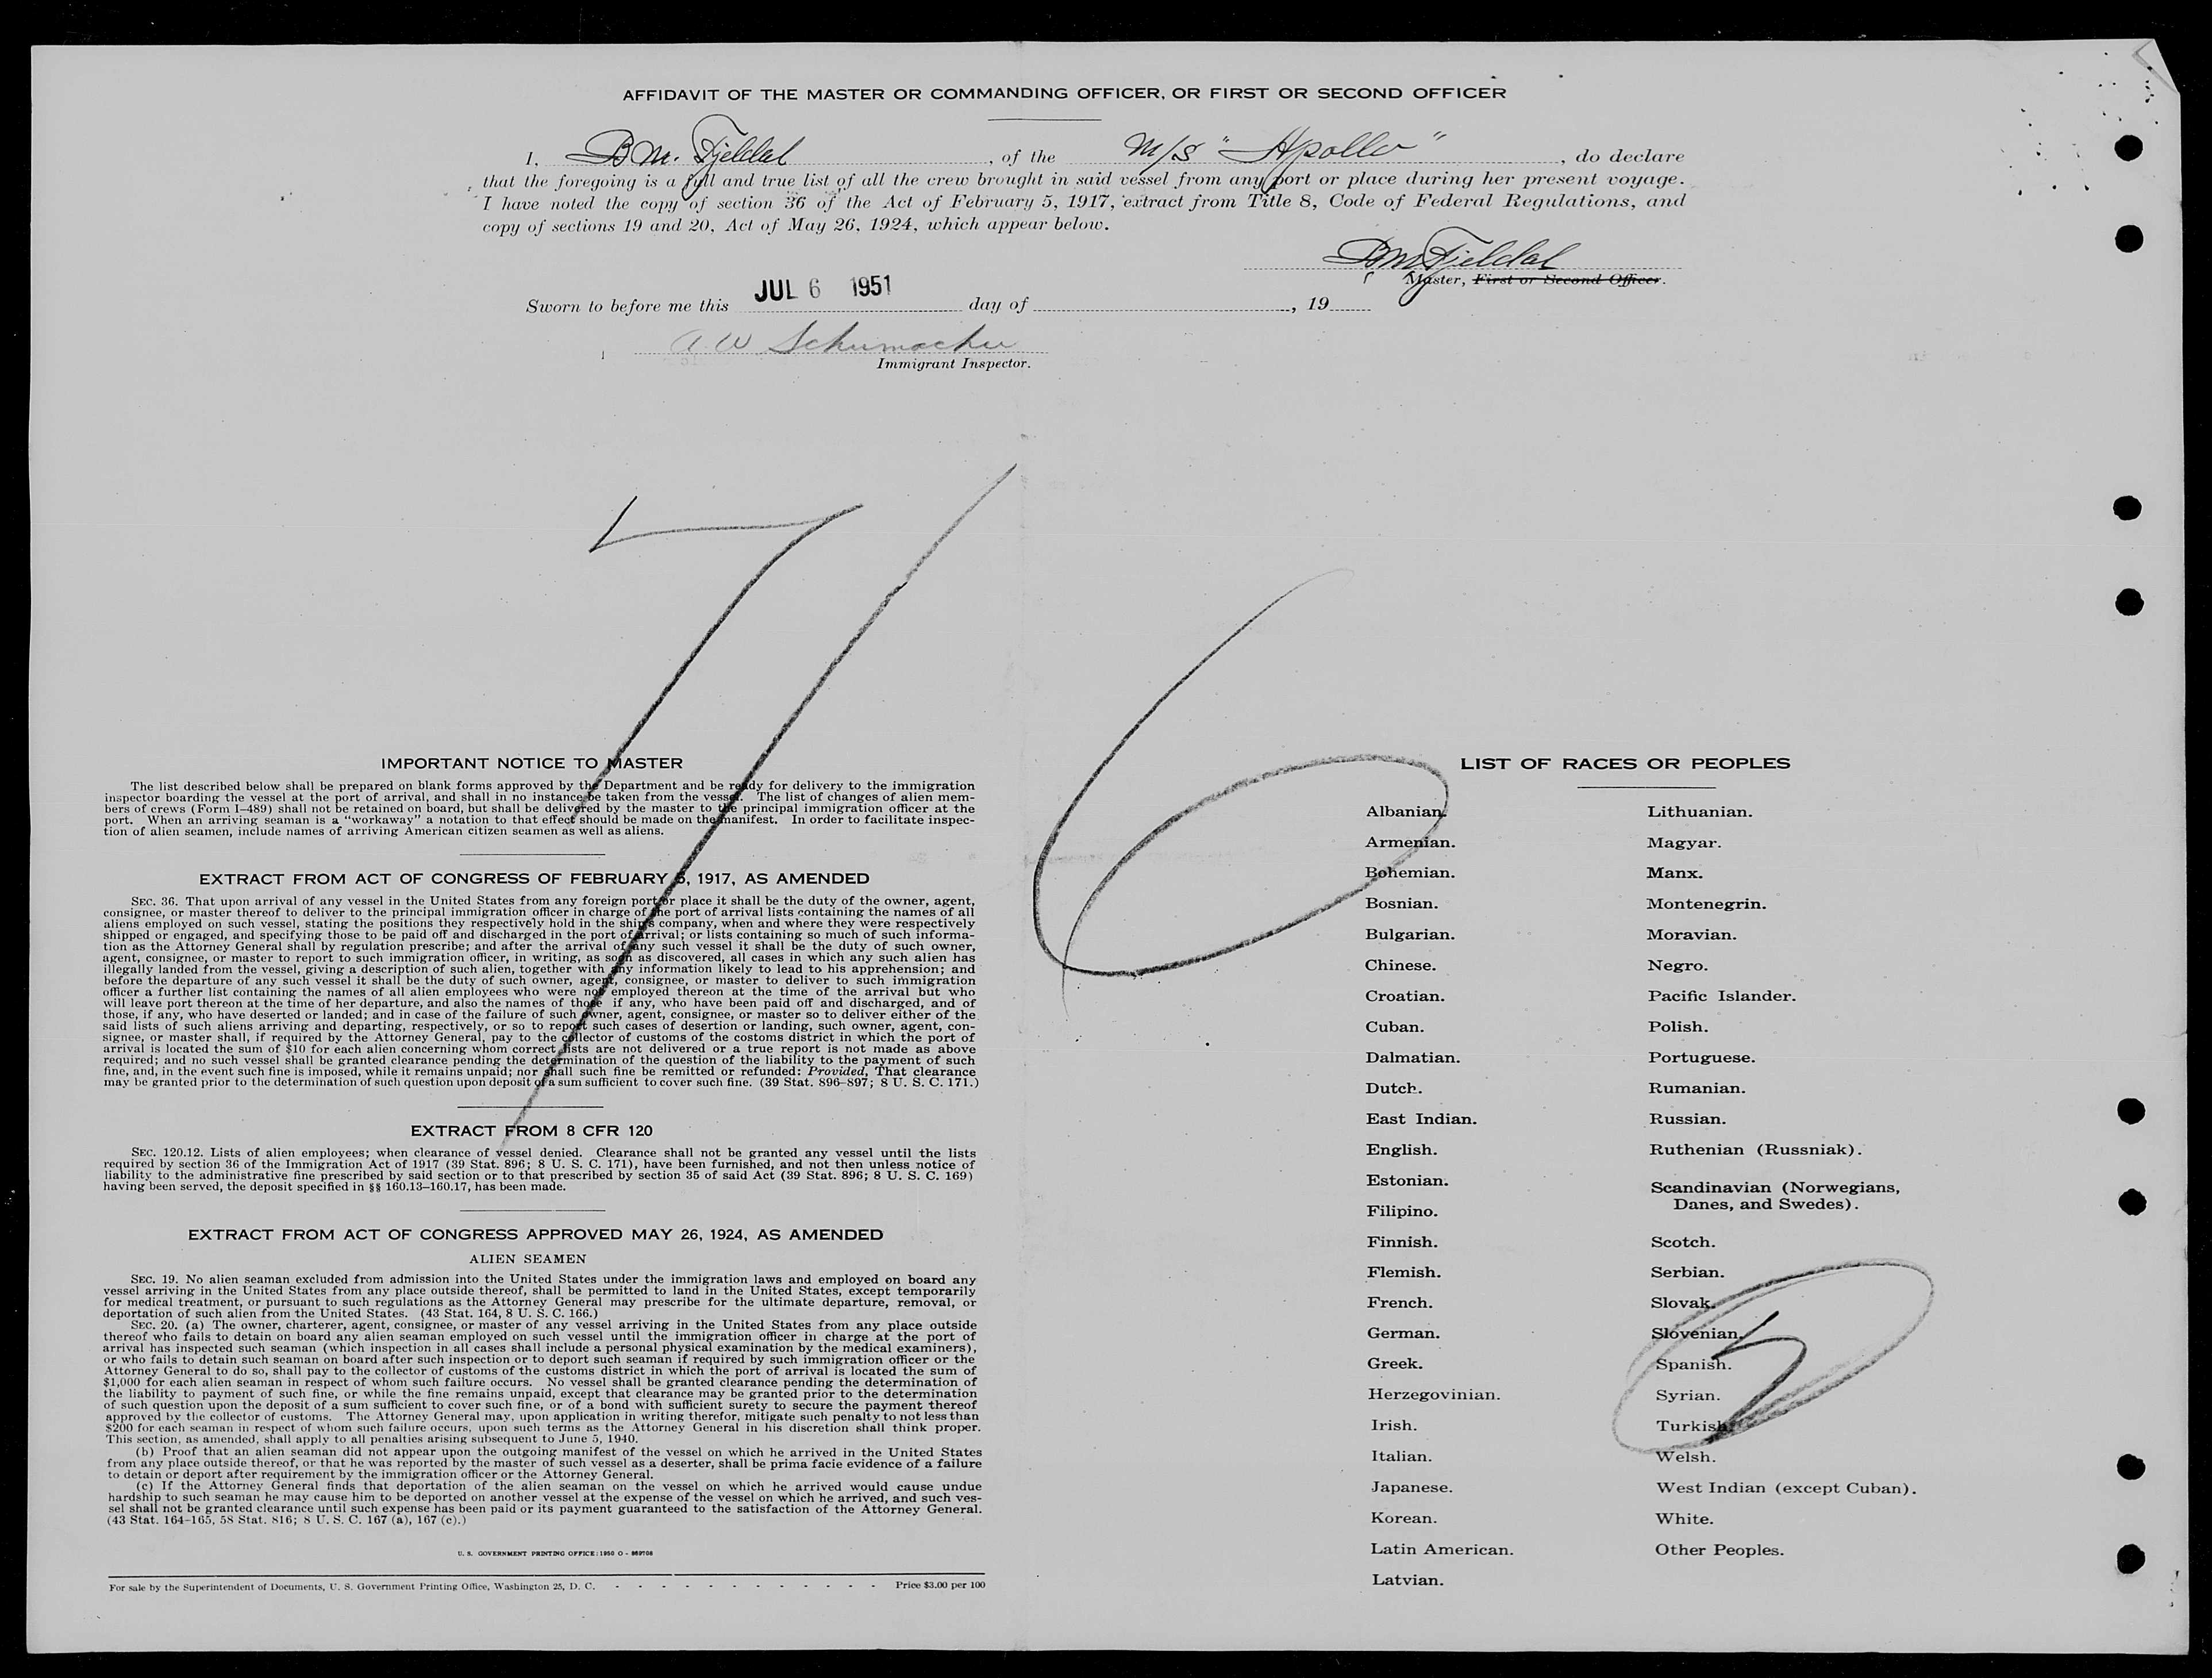 AFFIDAVIT OF THE MASTER OR COMMANDING OFFICER, OR FIRST OR SECOND OFFICER
I, B M. Fjeldal, of the M/S "Apollo", do declare
that the foregoing is a full and true list of all the crew brought in said vessel from any port or place during her present voyage.
I have noted the copy of section 36 of the Act of February 5, 1917, extract from Title 8, Code of Federal Regulations, and
copy of sections 19 and 20, Act of May 26, 1924, which appear below.
BM Fjeldal
Master, First or Second Officer.
Sworn to before me this JUL 6 1951 day of , 19
A W Schumacher
Immigrant Inspector.
7/6
IMPORTANT NOTICE TO MASTER
The list described below shall be prepared on blank forms approved by the Department and be ready for delivery to the immigration
inspector boarding the vessel at the port of arrival, and shall in no instance be taken from the vessel. The list of changes of alien mem-
bers of crews (Form I–489) shall not be retained on board, but shall be delivered by the master to the principal immigration officer at the
port. When an arriving seaman is a "workaway" a notation to that effect should be made on the manifest. In order to facilitate inspec-
tion of alien seamen, include names of arriving American citizen seamen as well as aliens.
EXTRACT FROM ACT OF CONGRESS OF FEBRUARY 5, 1917, AS AMENDED
SEC. 36. That upon arrival of any vessel in the United States from any foreign port or place it shall be the duty of the owner, agent,
consignee, or master thereof to deliver to the principal immigration officer in charge of the port of arrival lists containing the names of all
aliens employed on such vessel, stating the positions they respectively hold in the ship's company, when and where they were respectively
shipped or engaged, and specifying those to be paid off and discharged in the port of arrival; or lists containing so much of such informa-
tion as the Attorney General shall by regulation prescribe; and after the arrival of any such vessel it shall be the duty of such owner,
agent, consignee, or master to report to such immigration officer, in writing, as soon as discovered, all cases in which any such alien has
illegally landed from the vessel, giving a description of such alien, together with any information likely to lead to his apprehension; and
before the departure of any such vessel it shall be the duty of such owner, agent, consignee, or master to deliver to such immigration
officer a further list containing the names of all alien employees who were not employed thereon at the time of the arrival but who
will leave port thereon at the time of her departure, and also the names of those if any, who have been paid off and discharged, and of
those, if any, who have deserted or landed; and in case of the failure of such owner, agent, consignee, or master so to deliver either of the
said lists of such aliens arriving and departing, respectively, or so to report such cases of desertion or landing, such owner, agent, con-
signee, or master shall, if required by the Attorney General, pay to the collector of customs of the costoms district in which the port of
arrival is located the sum of $10 for each alien concerning whom correct lists are not delivered or a true report is not made as above
required; and no such vessel shall be granted clearance pending the determination of the question of the liability to the payment of such
fine, and, in the event such fine is imposed, while it remains unpaid; nor shall such fine be remitted or refunded: Provided, That clearance
may be granted prior to the determination of such question upon deposit of a sum sufficient to cover such fine. (39 Stat. 896–897; 8 U. S. C. 171.)
EXTRACT FROM 8 CFR 120
SEC. 120.12. Lists of alien employees; when clearance of vessel denied. Clearance shall not be granted any vessel until the lists
required by section 36 of the Immigration Act of 1917 (39 Stat. 896; 8 U. S. C. 171), have been furnished, and not then unless notice of
liability to the administrative fine prescribed by said section or to that prescribed by section 35 of said Act (39 Stat. 896; 8 U. S. C. 169)
having been served, the deposit specified in §§ 160.13–160.17, has been made.
EXTRACT FROM ACT OF CONGRESS APPROVED MAY 26, 1924, AS AMENDED
ALIEN SEAMEN
SEC. 19. No alien seaman excluded from admission into the United States under the immigration laws and employed on board any
vessel arriving in the United States from any place outside thereof, shall be permitted to land in the United States, except temporarily
for medical treatment, or pursuant to such regulations as the Attorney General may prescribe for the ultimate departure, removal, or
deportation of such alien from the United States. (43 Stat. 164, 8 U. S. C. 166.)
SEC. 20. (a) The owner, charterer, agent, consignee, or master of any vessel arriving in the United States from any place outside
thereof who fails to detain on board any alien seaman employed on such vessel until the immigration officer in charge at the port of
arrival has inspected such seaman (which inspection in all cases shall include a personal physical examination by the medical examiners),
or who fails to detain such seaman on board after such inspection or to deport such seaman if required by such immigration officer or the
Attorney General to do so, shall pay to the collector of customs of the customs district in which the port of arrival is located the sum of
$1,000 for each alien seaman in respect of whom such failure occurs. No vessel shall be granted clearance pending the determination of
the liability to payment of such fine, or while the fine remains unpaid, except that clearance may be granted prior to the determination
of such question upon the deposit of a sum sufficient to cover such fine, or of a bond with sufficient surety to secure the payment thereof
approved by the collector of customs. The Attorney General may, upon application in writing therefor, mitigate such penalty to not less than
$200 for each seaman in respect of whom such failure occurs, upon such terms as the Attorney General in his discretion shall think proper.
This section, as amended, shall apply to all penalties arising subsequent to June 5, 1940.
(b) Proof that an alien seaman did not appear upon the outgoing manifest of the vessel on which he arrived in the United States
from any place outside thereof, or that he was reported by the master of such vessel as a deserter, shall be prima facie evidence of a failure
to detain or deport after requirement by the immigration officer or the Attorney General.
(c) If the Attorney General finds that deportation of the alien seaman on the vessel on which he arrived would cause undue
hardship to such seaman he may cause him to be deported on another vessel at the expense of the vessel on which he arrived, and such ves-
sel shall not be granted clearance until such expense has been paid or its payment guaranteed to the satisfaction of the Attorney General.
(43 Stat. 164–165, 58 Stat. 816; 8 U. S. C. 167 (a), 167 (c).)
U. S. GOVERNMENT PRINTING OFFICE: 1950 O - 869708
For sale by the Superintendent of Documents, U. S. Government Printing Office, Washington 25, D. C. - - - - - - - - - - - - Price $3.00 per 100
LIST OF RACES OR PEOPLES
Albanian.
Armenian.
Bohemian.
Bosnian.
Bulgarian.
Chinese.
Croatian.
Cuban.
Dalmatian.
Dutch.
East Indian.
English.
Estonian.
Filipino.
Finnish.
Flemish.
French.
German.
Greek.
Herzegovinian.
Irish.
Italian.
Japanese.
Korean.
Latin American.
Latvian.
Lithuanian.
Magyar.
Manx.
Montenegrin.
Moravian.
Negro.
Pacific Islander.
Polish.
Portuguese.
Rumanian.
Russian.
Ruthenian (Russniak).
Scandinavian (Norwegians,
Danes, and Swedes).
Scotch.
Serbian.
Slovak.
Slovenian.
Spanish.
Syrian.
Turkish.
Welsh.
West Indian (except Cuban).
White.
Other Peoples.